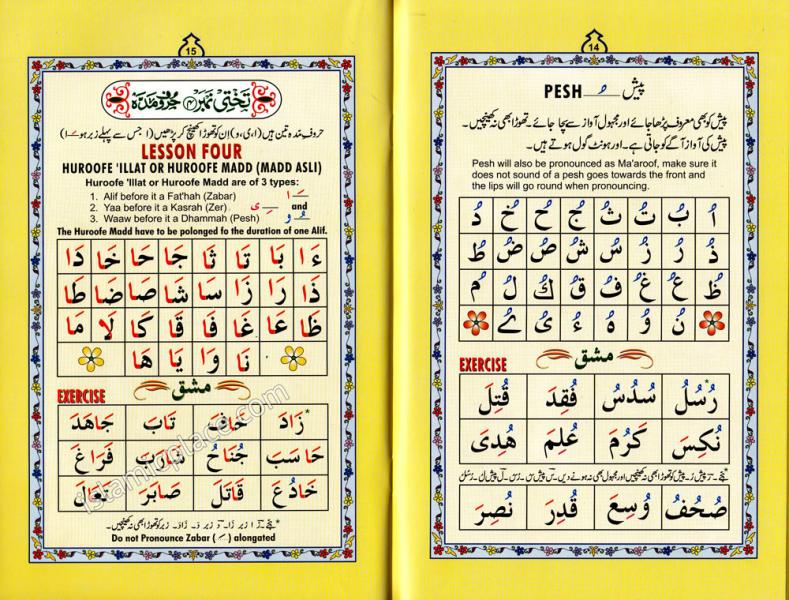 14
PESH ـُ پیش
پیش کو بھی معروف پڑھا جائے اور مجہول آواز سے بچا جائے۔ تھوڑا بھی نہ کھینچیں۔
پیش کی آواز آگے کو جاتی ہے۔ اور ہونٹ گول ہوتے ہیں۔
Pesh will also be pronounced as Ma'aroof, make sure it
does not sound of a pesh goes towards the front and
the lips will go round when pronouncing.
اُ بُ تُ ثُ جُ حُ خُ دُ
ذُ رُ زُ سُ شُ صُ ضُ طُ
ظُ عُ غُ فُ قُ كُ لُ مُ
نُ وُ هُ ءُ یُ ےُ
EXERCISE مشق
رُسُلُ* سُدُسُ فُقِدَ قُتِلَ
نُكِسَ كَرُمَ عُلِمَ هُدِیَ
صُحُفُ وُسِعَ قُدِرَ نُصِرَ
15
تختی نمبر ۴ حروف مدہ
حروف مدہ تین ہیں (ا، ی، و) ان کو تھوڑا کھینچ کر پڑھیں (ا جس سے پہلے زبر ہو ـَا)
LESSON FOUR
HUROOFE 'ILLAT OR HUROOFE MADD (MADD ASLI)
Huroofe 'Illat or Huroofe Madd are of 3 types:
1. Alif before it a Fat'hah (Zabar) ـَا
2. Yaa before it a Kasrah (Zer) ـِی and
3. Waaw before it a Dhammah (Pesh) ـُو
The Huroofe Madd have to be polonged fo the duration of one Alif.
ءَا بَا تَا ثَا جَا حَا خَا دَا
ذَا رَا زَا سَا شَا صَا ضَا طَا
ظَا عَا غَا فَا قَا كَا لَا مَا
نَا وَا یَا هَا
EXERCISE مشق
زَادَ* خَافَ تَابَ جَاهَدَ
حَاسَبَ جُنَاحُ شَارَبَ فَرَاغَ
خَادَعَ قَاتَلَ صَابَرَ تَعَالَ
Do not Pronounce Zabar (ـَ) alongated
islamicplace.com